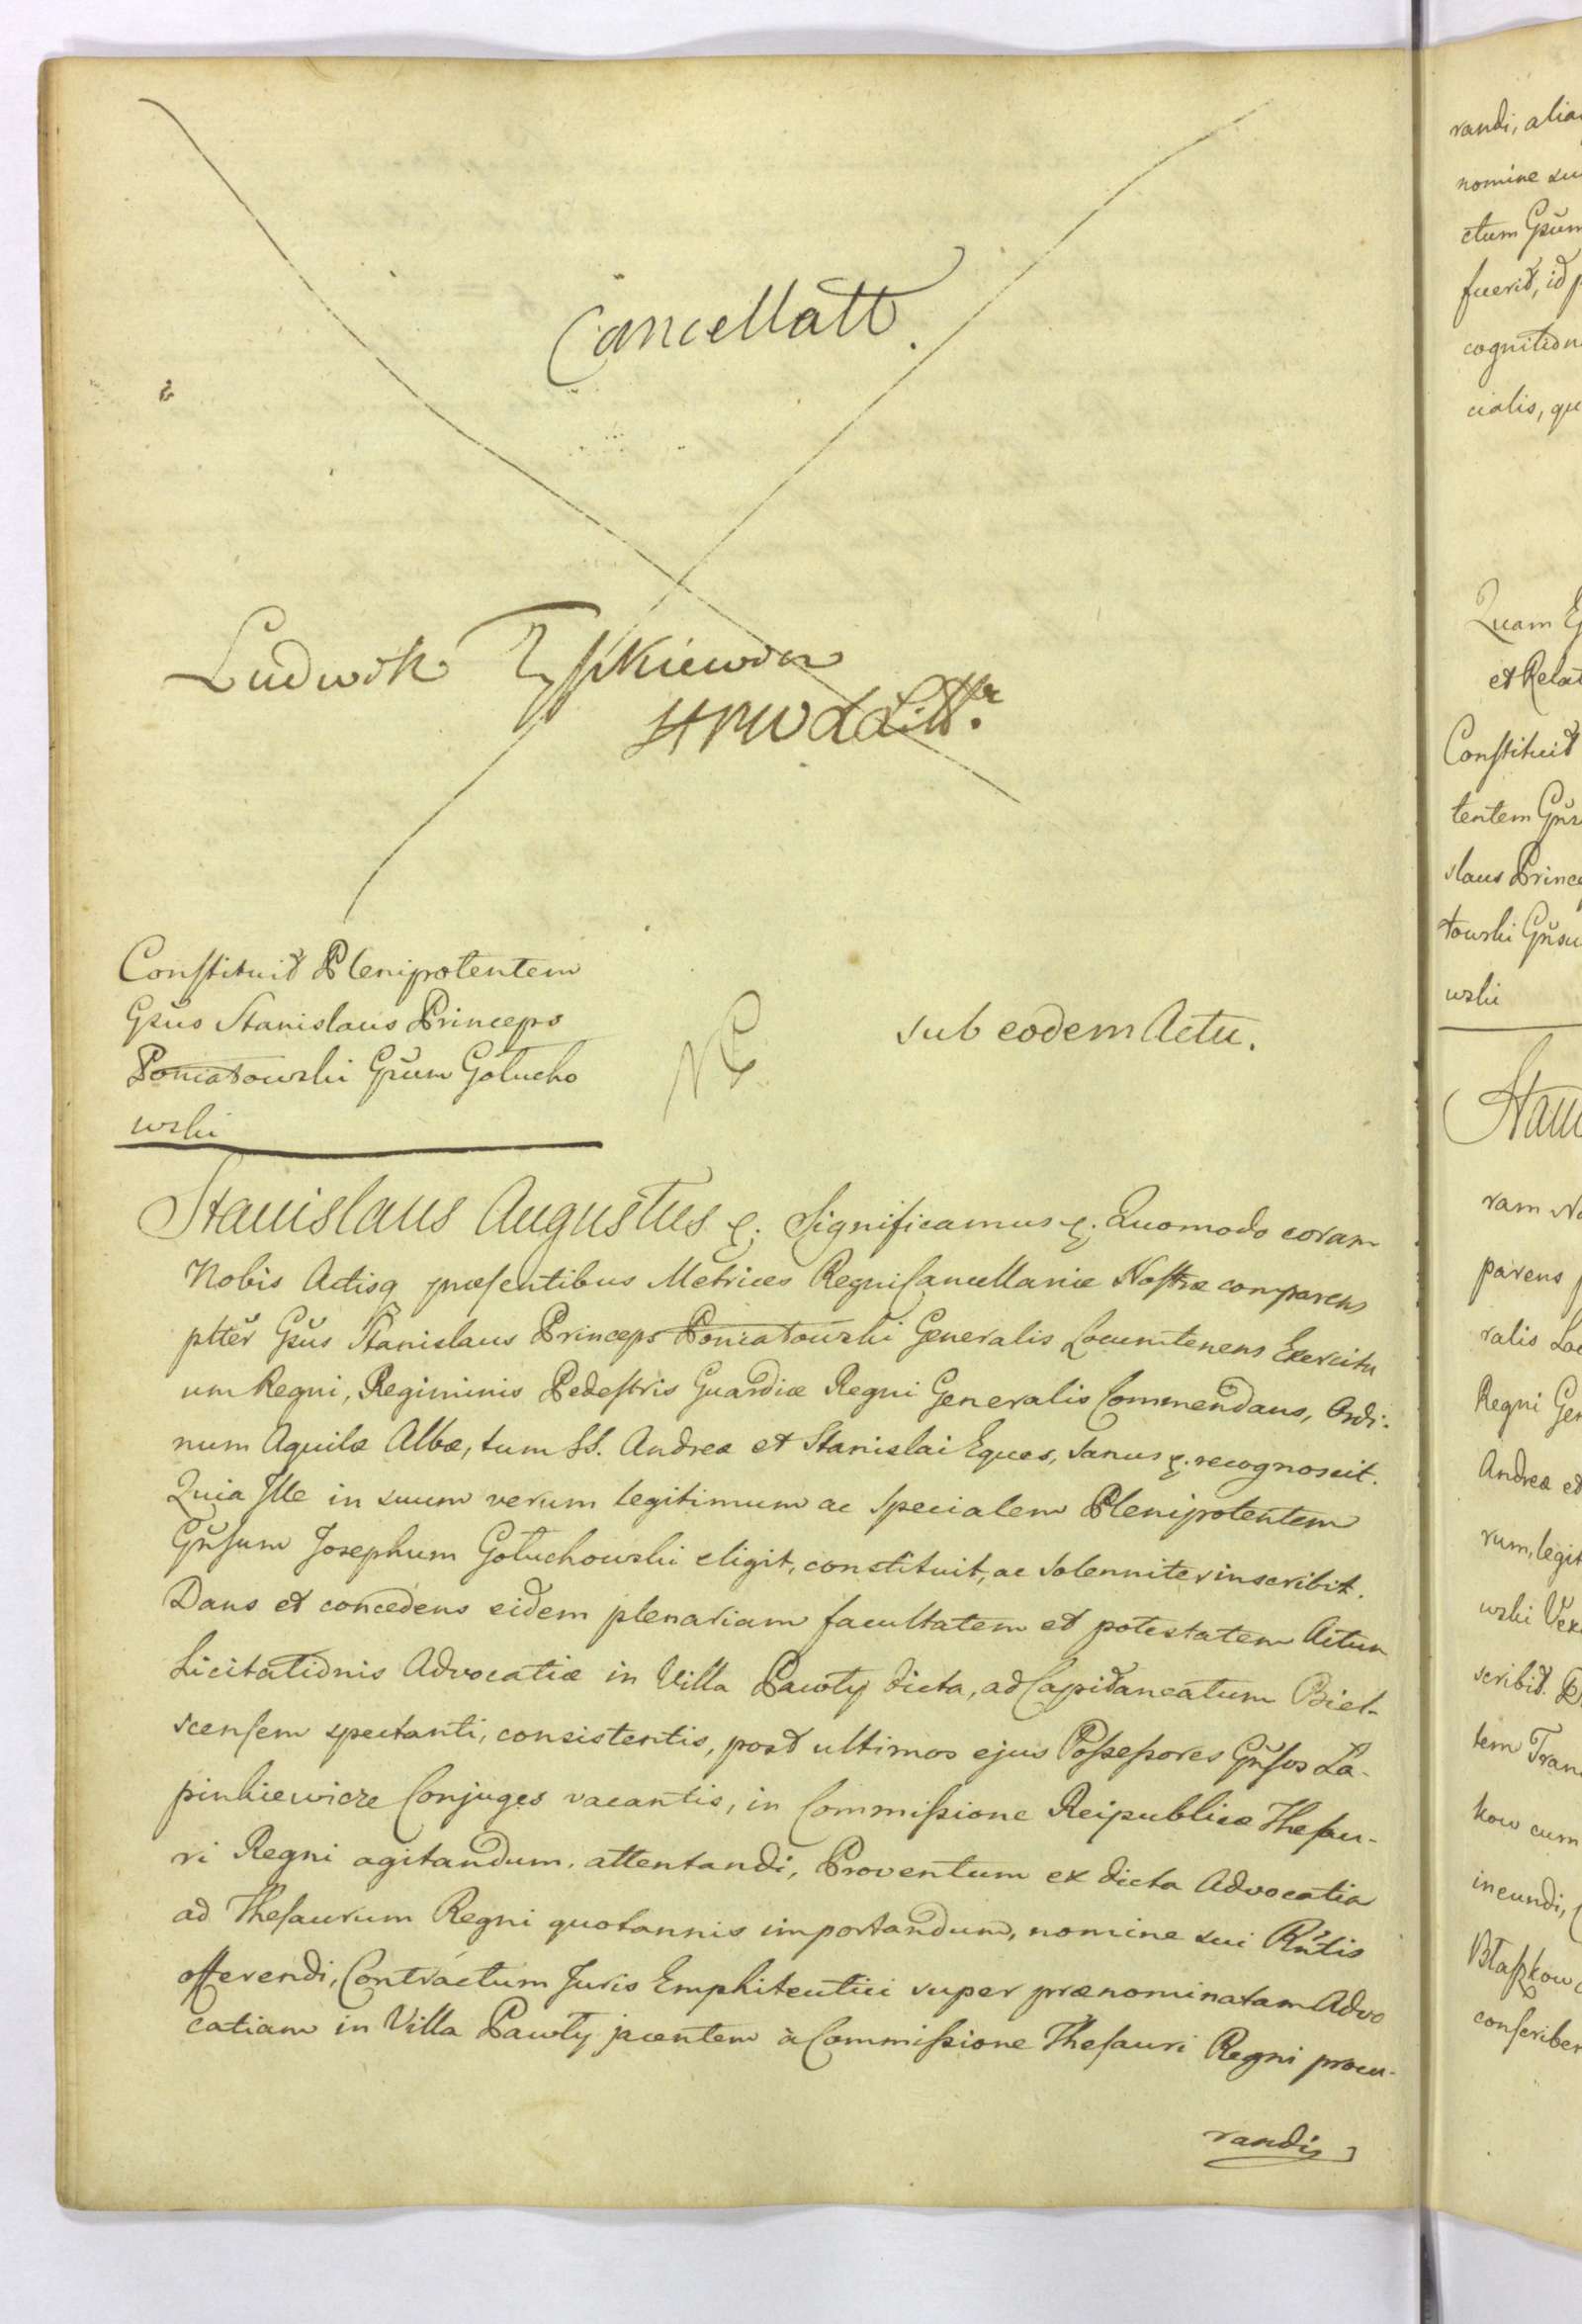 Cancellatt.
Ludwik Tyszkiewicz
HPWdLitt.
Constituit Plenipotentem
Gsus Stanislaus Princeps
Poniatowski Gsum Gołucho
wski
sub eodem Actu.
Stanislaus Augustus &. Significamus &. Quomodo coram
Nobis Actisq præsentibus Metrices Regni Cancellariæ Nostræ comparens
ptter Gsus Stanislaus Princeps Poniatowski Generalis Locumtenens Exercitu
um Regni, Regiminis Pedestris Guardiæ Regni Generalis Commendans, Ordi-
num Aquilæ Albæ, tum SS. Andreæ et Stanislai Eques, sanus &. recognoscit.
Quia Ille in suum verum legitimum ac specialem Plenipotentem
Gnsum Josephum Gołuchowski eligit, constituit, ac solenniter inscribit.
Dans et concedens eidem plenariam facultatem et potestatem Actum
Licitationis Advocatiæ in Villa Pawły dicta, ad Capitaneatum Biel-
scensem spectanti, consistentis, post ultimos ejus Possessores Gnsos Ła-
pinkiewicze Conjuges vacantis, in Commissione Reipublicæ Thesau-
ri Regni agitandum, attentandi, Proventum ex dicta Advocatia
ad Thesaurum Regni quotannis importandum, nomine sui Rntis
offerendi, Contractum Juris Emphiteutici super prænominatam Advo
catiam in Villa Pawły jacentem à Commissione Thesauri Regni procu-
randi,
randi, alia
nomine su
ctum Gsum
fuerit, id p
cognition
cialis, qu
Quam
et Relat
Constituit
tentem Gns
slaus Prince
towski Gnsu
wski
Stani
ram No
parens p
ralis Loc
Regni Gen
Andreæ et
rum, legit
wski Vex
scribit. D
tem Tran
kow cum
ineundi, C
Błaszkow
conscriben